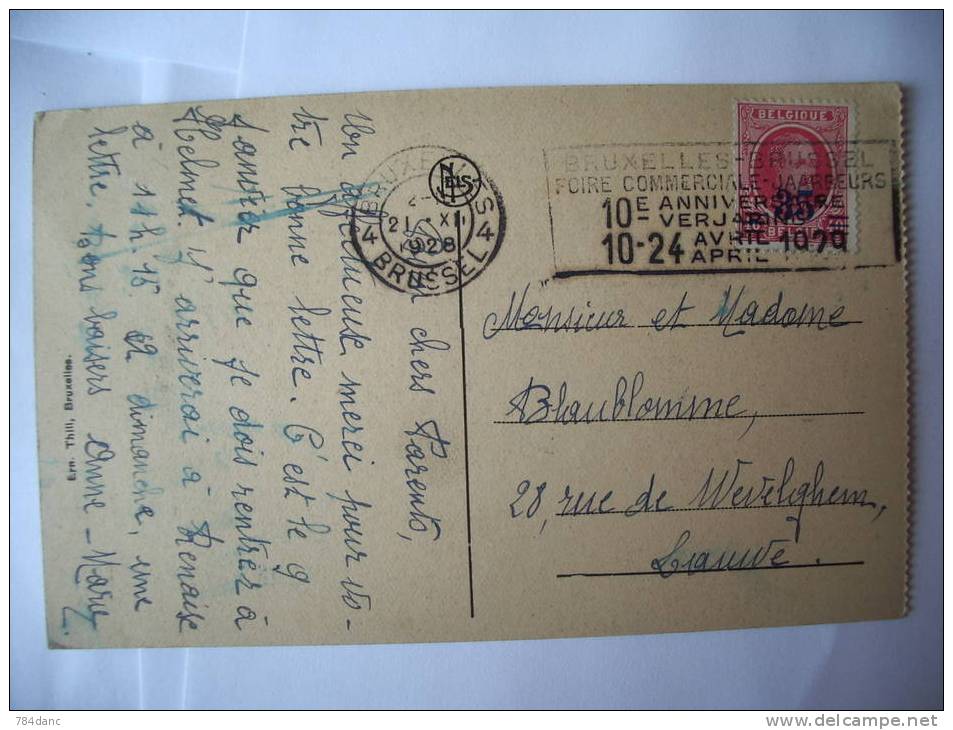 Mes chers Parents,
Un affectueuse merci pour vo-
tre bonne lettre. C'est le 9
Janvier que je dois rentrer à
Helmet. J'arriverai à Renaix
à 11h.15. dimanche, une
lettre. bons baisers Anne-Marie
Ern. Thill, Bruxelles.
NELS
BRUXELLES
4 1928 4
BRUSSEL
BRUXELLES-BRUSSEL
FOIRE COMMERCIALE-JAARBEURS
10E ANNIVERSAIRE
VERJARING
10-24 AVRIL 1929
APRIL
BELGIQUE
35
BELGIË
Monsieur et Madame
Blaublomme,
28, rue de Wevelghem,
Lauwe.
784danc
delcampe.net